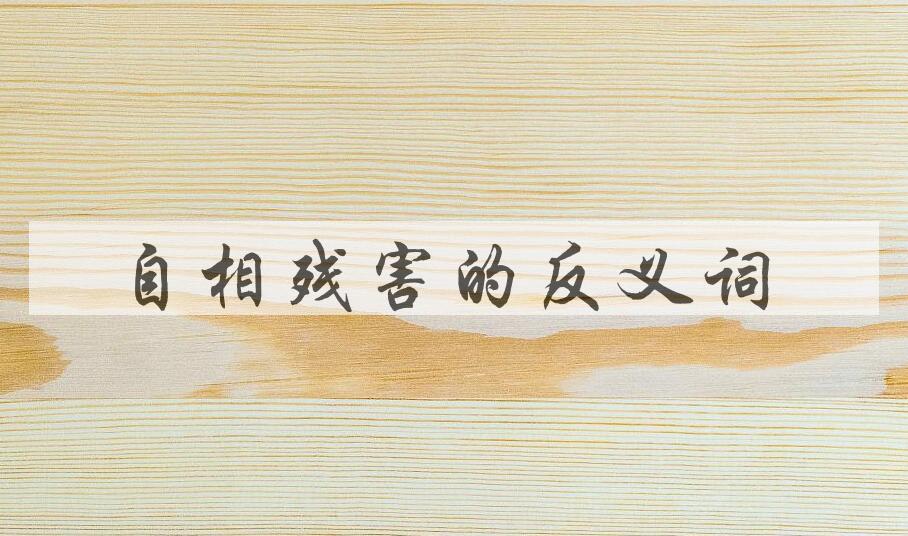 自相残害的反义词